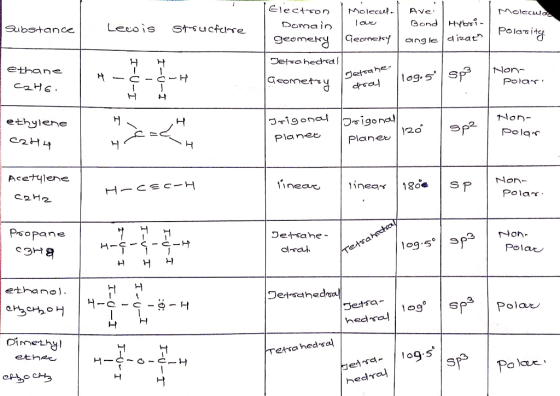 Substance
Lewis Structure
Electron
Domain
geometry
Molecul-
lar
Geometry
Ave.
Bond
angle
Hybri-
dizatⁿ
Molecular
Polarity
ethane
C2H6.
H H
H – C – C – H
H H
Tetrahedral
Geometry
Tetrahe-
dral
109.5°
Sp³
Non-
Polar.
ethylene
C2H4
H H
C = C
H H
Trigonal
Planer
Trigonal
Planer
120°
Sp²
Non-
Polar
Acetylene
C2H2
H – C ≡ C – H
linear
linear
180°
SP
Non-
Polar.
Propane
C3H8
H H H
H – C – C – C – H
H H H
Tetrahe-
dral
Tetrahedral
109.5°
SP³
Non.
Polar
ethanol.
CH3CH2OH
H H
H – C – C – Ö – H
H H
Tetrahedral
Tetra-
hedral
109°
SP³
Polar
Dimethyl
ether
CH3OCH3
H H
H – C – O – C – H
H H
Tetrahedral
Tetra-
hedral
109.5°
SP³
Polar.